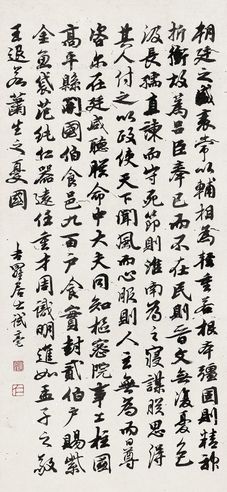 朝廷之盛衰常以輔相為輕重若根本彊固則精神
折衝故為呂臣奉己而不在民則晉文無復憂色
汲長孺直諫而守死節則淮南為之寢謀朕思得
其人付之以政使天下聞風而心服則人主無為而日尊
咨尔在廷咸聽朕命中大夫同知樞密院事上柱國
高平縣開國伯食邑九百戶食實封貳伯戶賜紫
金魚袋范純仁器遠任重才周識明進如孟子之敬
王退若蕭生之憂國
吉羅居士試毫